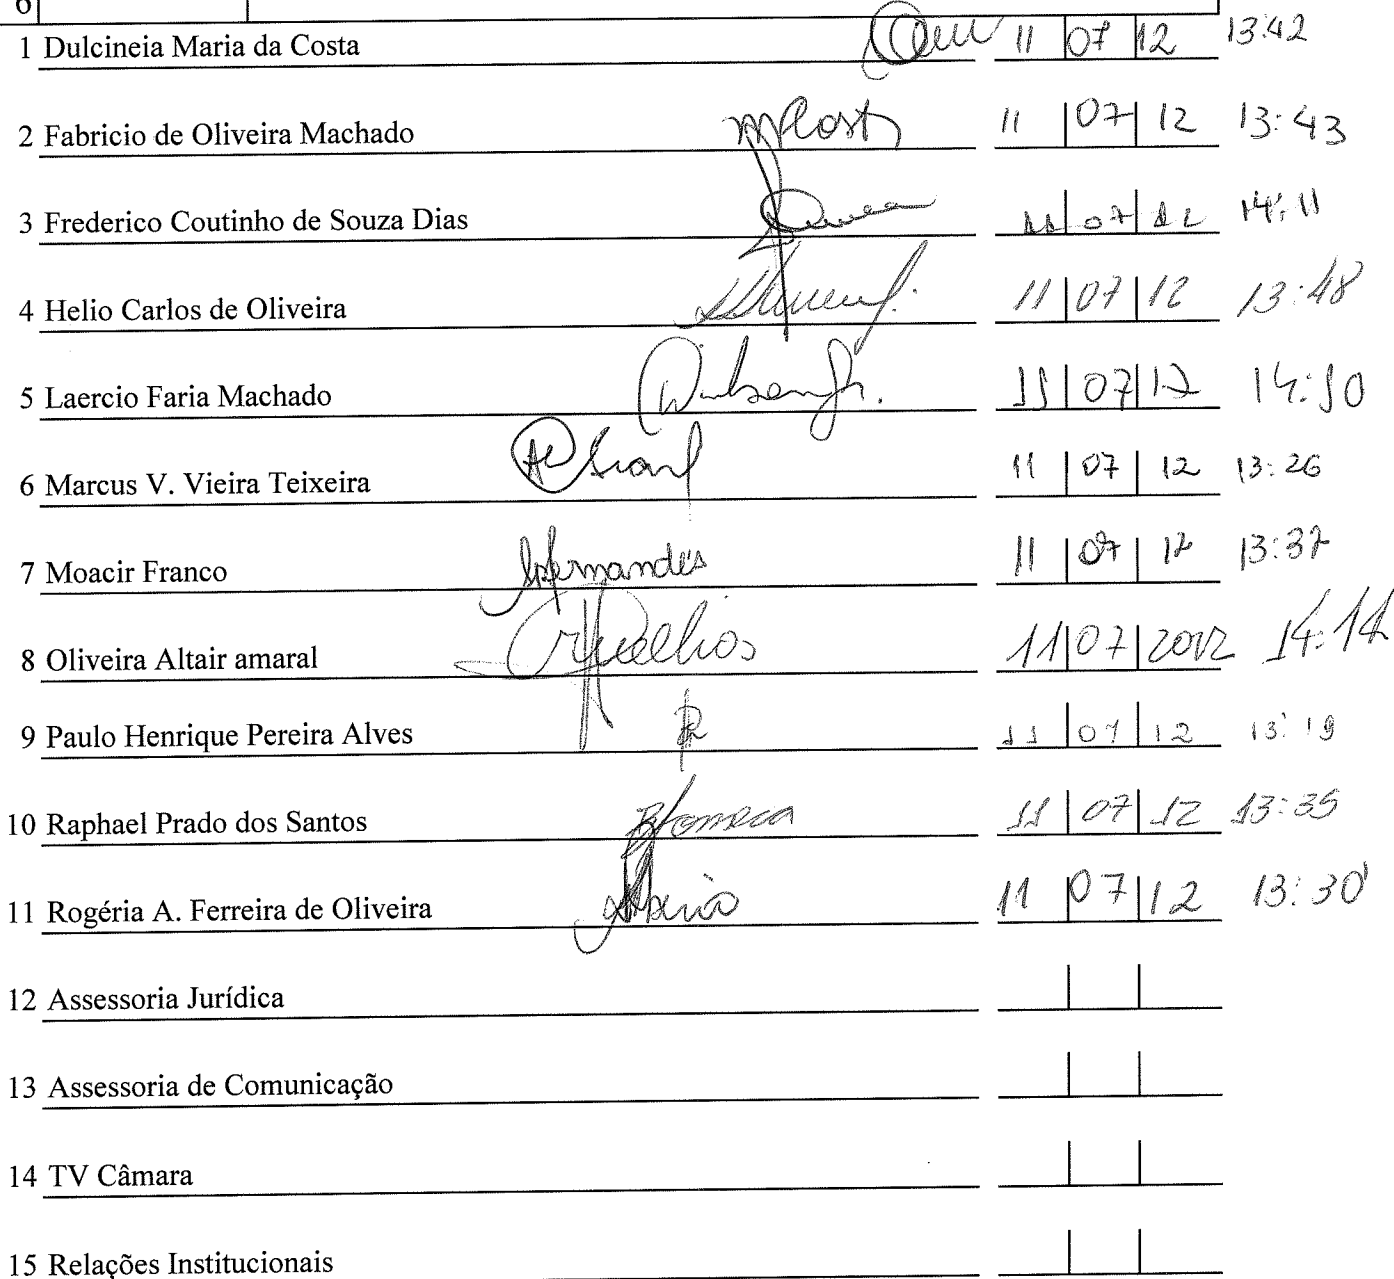 6
1 Dulcineia Maria da Costa 11 07 12 13:42
2 Fabricio de Oliveira Machado mPCosta 11 07 12 13:43
3 Frederico Coutinho de Souza Dias 11 07 12 14:11
4 Helio Carlos de Oliveira 11 07 12 13:48
5 Laercio Faria Machado 11 07 12 14:10
6 Marcus V. Vieira Teixeira 11 07 12 13:26
7 Moacir Franco 11 07 12 13:37
8 Oliveira Altair amaral 11 07 2012 14:14
9 Paulo Henrique Pereira Alves 11 07 12 13:19
10 Raphael Prado dos Santos 11 07 12 13:35
11 Rogéria A. Ferreira de Oliveira 11 07 12 13:30
12 Assessoria Jurídica
13 Assessoria de Comunicação
14 TV Câmara
15 Relações Institucionais